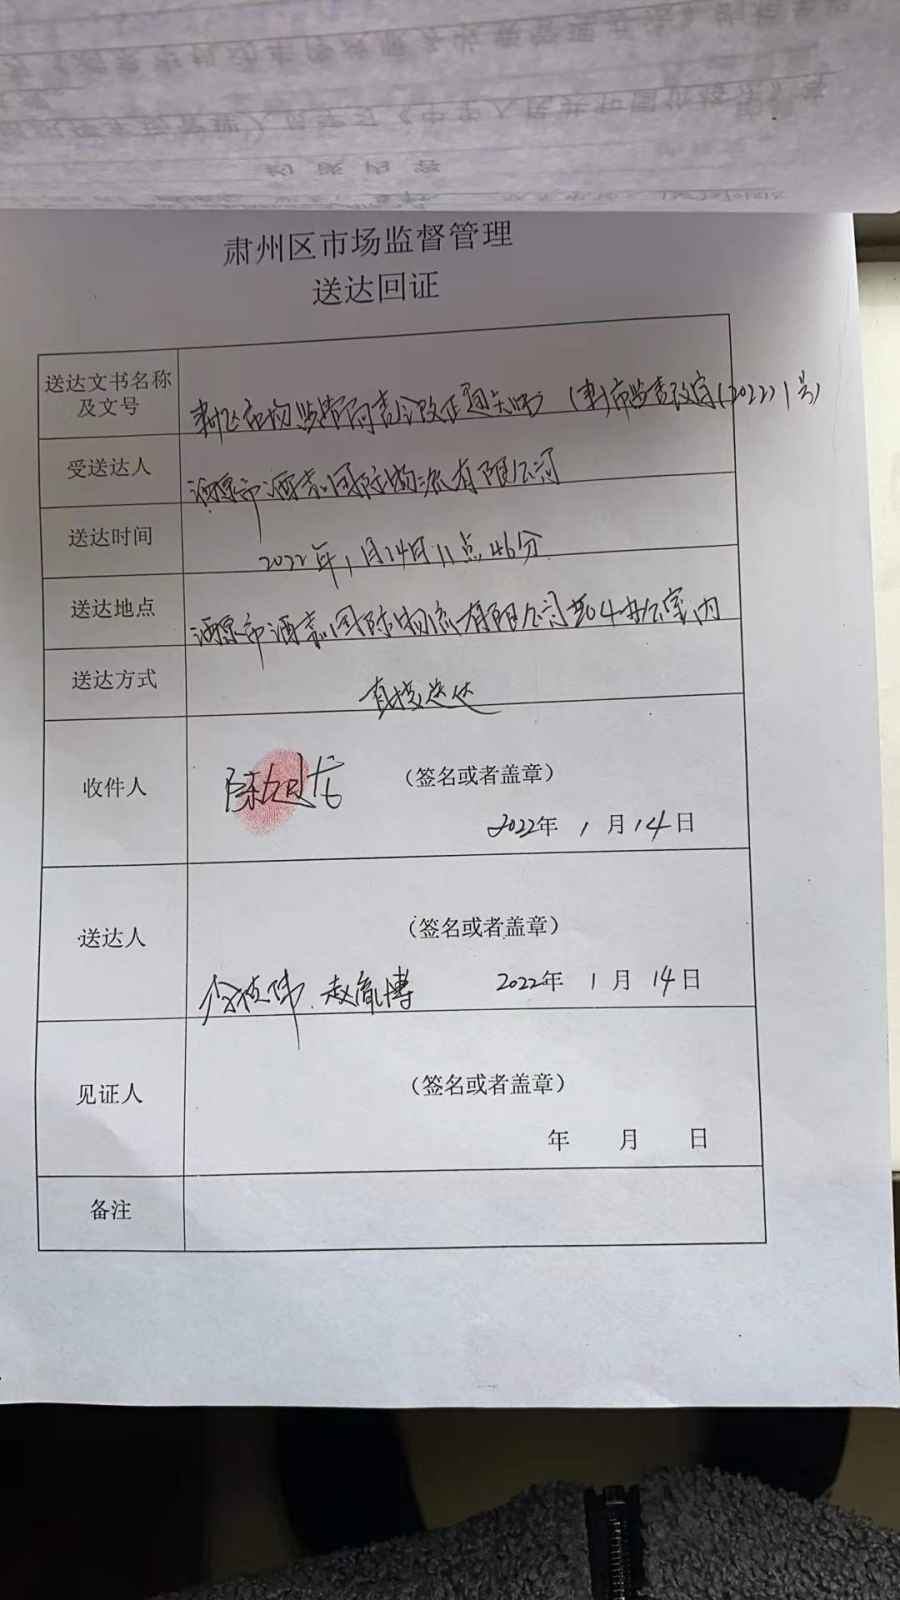 肃州区市场监督管理
送达回证
送达文书名称
及文号
肃州区市场监督局责令改正通知书 (肃)市监责改字(2022)1号
受送达人
酒泉市酒嘉国际物流有限公司
送达时间
2022年1月14日11点46分
送达地点
酒泉市酒嘉国际物流有限公司 办公室内
送达方式
直接送达
收件人
(签名或者盖章)
2022年 1 月 14 日
送达人
(签名或者盖章)
赵胤博
2022年 1 月 14 日
见证人
(签名或者盖章)
年 月 日
备注